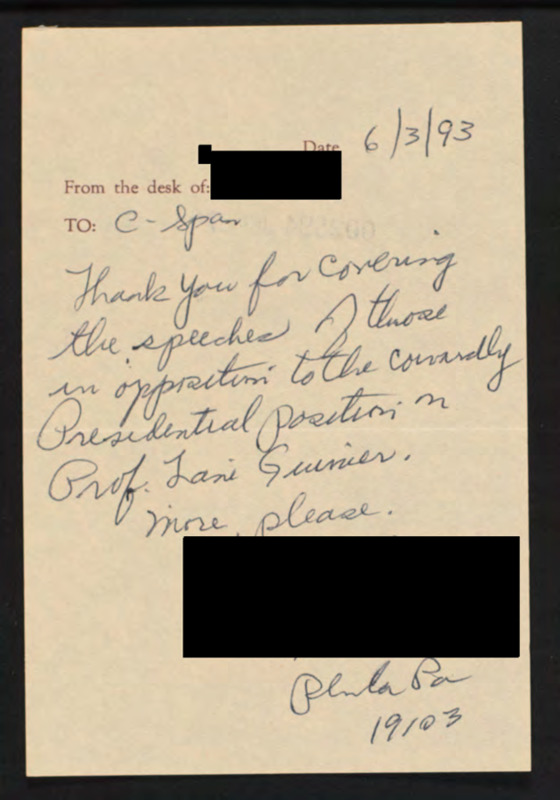 Date 6/3/93
From the desk of:
TO: C-Span
Thank you for covering
the speeches of those
in opposition to the cowardly
Presidential position on
Prof. Lani Guinier.
More, please.
Phila Pa
19103